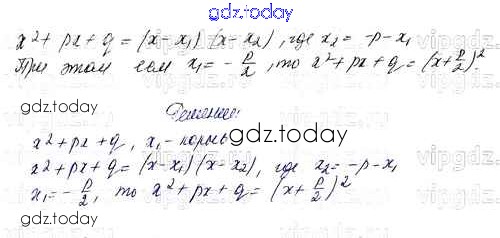 gdz.today
x² + px + q = (x - x₁)(x - x₂), где x₂ = -p - x₁
При этом если x₁ = -p/2, то x² + px + q = (x + p/2)².
gdz.today
Решение:
x² + px + q, x₁ - корень
gdz.today
x² + px + q = (x - x₁)(x - x₂), где x₂ = -p - x₁
x₁ = -p/2, то x² + px + q = (x + p/2)²
gdz.today